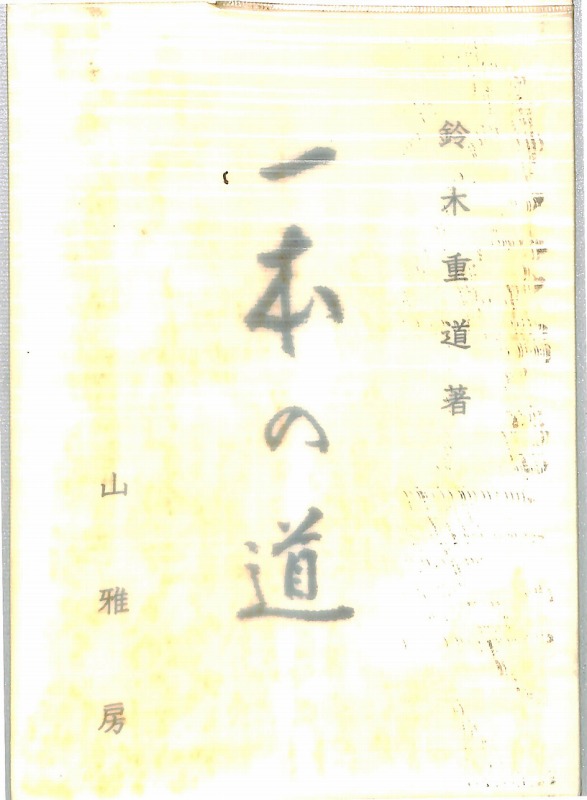 鈴木重道著
一本の道
山雅房